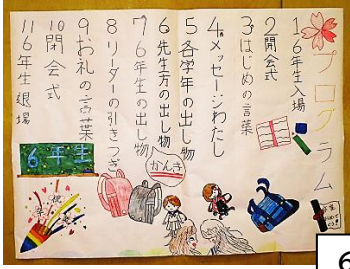 プログラム
1 6年生入場
2 開会式
3 はじめの言葉
4 メッセージわたし
5 各学年の出し物
6 先生方の出し物
7 6年生の出し物
8 リーダーの引きつぎ
9 お礼の言葉
10 閉会式
11 6年生退場
かんき
6年生
祝
6